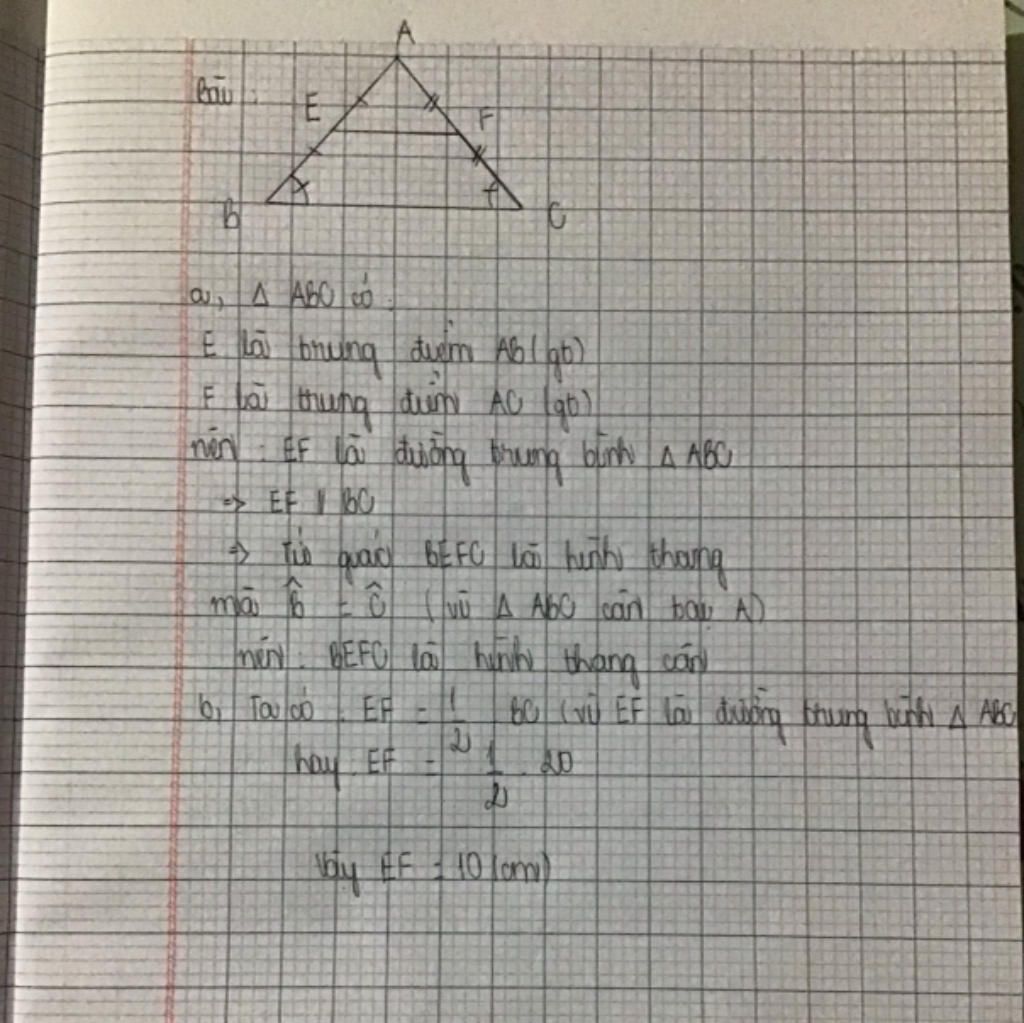 A
Bài :
E
F
B
C
a, Δ ABC có :
E là trung điểm AB (gt)
F là trung điểm AC (gt)
nên : EF là đường trung bình Δ ABC
=> EF // BC
=> Tứ giác BEFC là hình thang
mà B̂ = Ĉ (vì Δ ABC cân tại A)
nên : BEFC là hình thang cân
b, Ta có : EF = 1/2 BC (vì EF là đường trung bình Δ ABC
hay EF = 1/2 . 20
Vậy EF = 10 (cm)